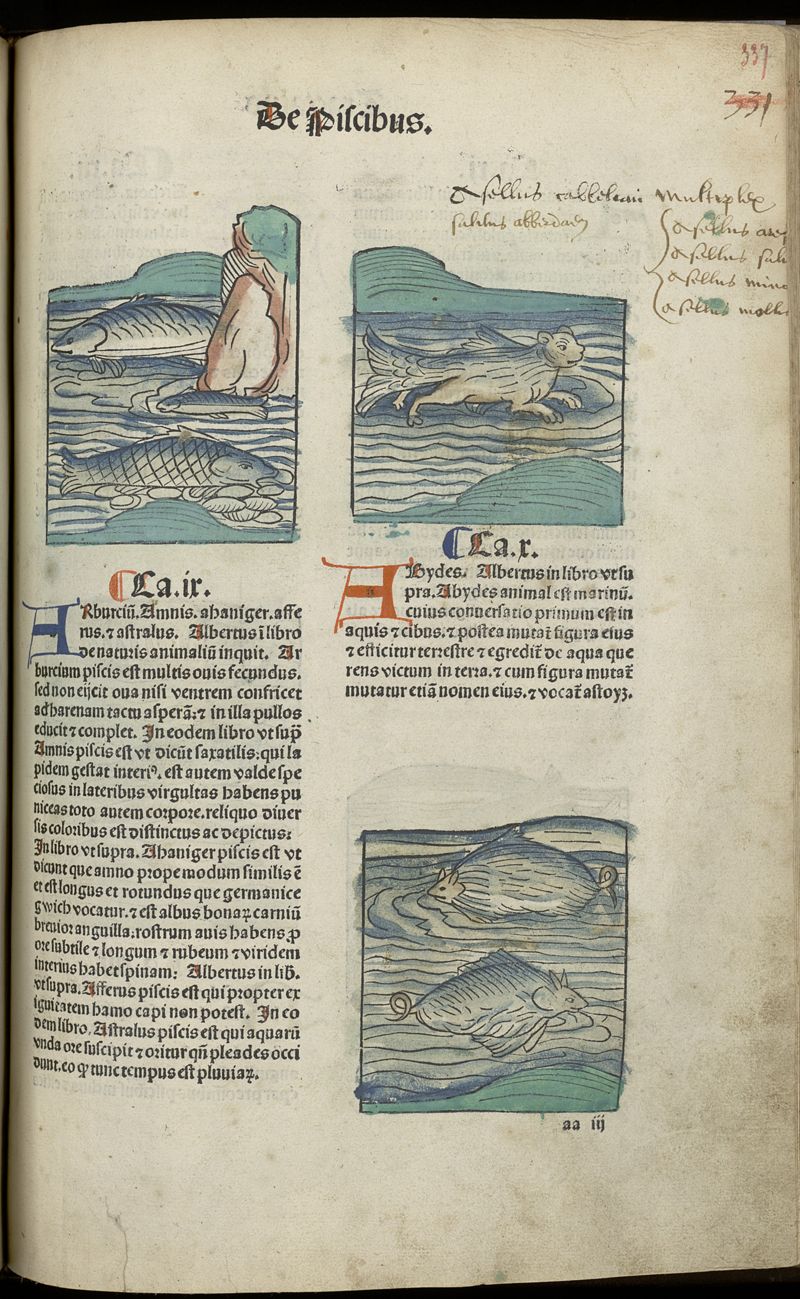 337
331
De Piscibus.
Asellus cabbeliau multiplex
salitus abberdaen
Asellus
Asellus sali
Asellus mino
Asellus molli
Ca.ix.
ARburciū. Amnis. ahaniger. affe
rus. ⁊ astralus. Albertus ī libro
de naturis animaliū inquit. Ar
burcium piscis est multis ouis fecundus.
sed non eijcit oua nisi ventrem confricet
ad harenam tactu asperā: ⁊ in illa pullos
educit ⁊ complet. In eodem libro vt supͣ
Amnis piscis est vt dicūt saxatilis: qui la
pidem gestat interiꝰ. est autem valde spe
ciosus in lateribus virgultas habens pu
niceas toto autem corpore. reliquo diuer
sis coloribus est distinctus ac depictus:
In libro vt supra. Ahaniger piscis est vt
dicunt que amno propemodum similis ē
et est longus et rotundus que germanice
gwich vocatur. ⁊ est albus bonaꝝ carniū
breuior anguilla: rostrum auis habens ꝓ
ore subtile ⁊ longum ⁊ rubeum ⁊ viridem
interius habet spinam: Albertus in lib.
vt supra. Afferus piscis est qui propter ex
iguitatem hamo capi non potest. In eo
dem libro. Astralus piscis est qui aquarū
vnda ore suscipit ⁊ oritur qn̄ pleades occi
dunt. eo ꝙ tunc tempus est pluuiaꝝ.
Ca.x.
ABydes. Albertus in libro vt su
pra. Abydes animal est marinū.
cuius conuersatio primum est in
aquis ⁊ cibus. ⁊ postea mutat̄ figura eius
⁊ efficitur terrestre ⁊ egredit̄ de aqua que
rens victum in terra. ⁊ cum figura mutat̄
mutatur etiā nomen eius. ⁊ vocat̄ astoyȝ.
aa iij